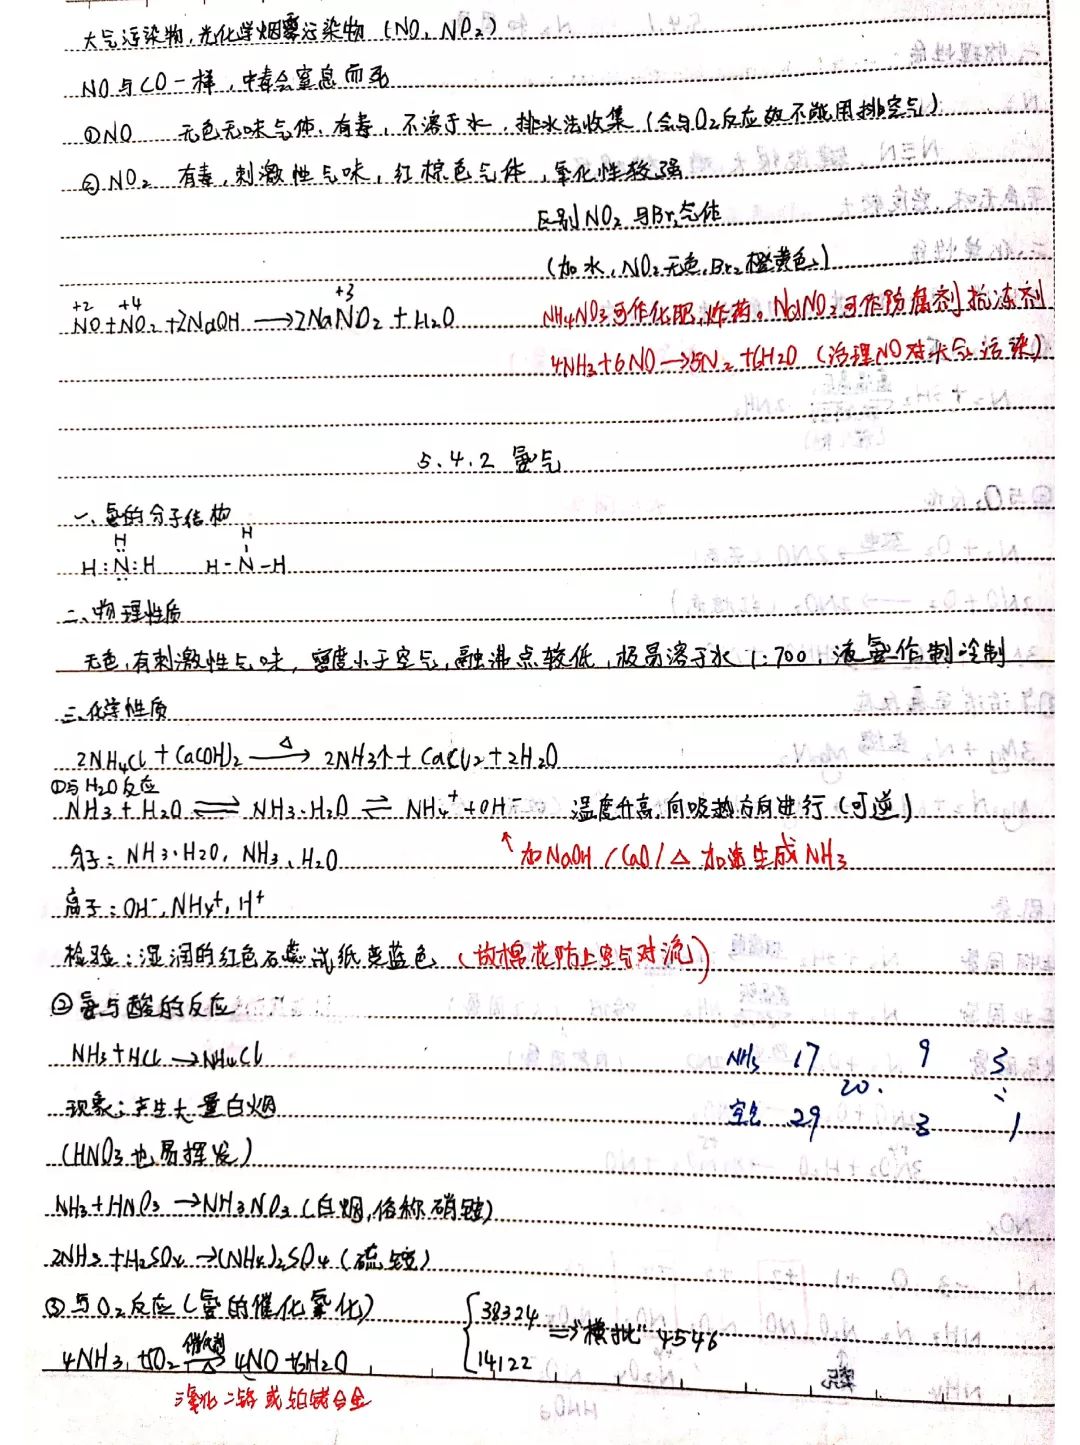 大气污染物,光化学烟雾污染物 (NO, NO₂)
NO与CO一样,中毒会窒息而死
①NO 无色无味气体,有毒,不溶于水,排水法收集(会与O₂反应故不能用排空气)
②NO₂ 有毒,刺激性气味,红棕色气体,氧化性较强
区别NO₂与Br₂气体
(加水,NO₂无色,Br₂橙黄色)
+2 +4 +3
NO+NO₂+2NaOH→2NaNO₂+H₂O
NH₄NO₃可作化肥,炸药。NaNO₂可作防腐剂抗冻剂
4NH₃+6NO→5N₂+6H₂O (治理NO对大气污染)
5.4.2 氨气
一、氨的分子结构
H H
H:N:H H-N-H
二、物理性质
无色,有刺激性气味,密度小于空气,融沸点较低,极易溶于水 1:700,液氨作制冷制
三、化学性质
2NH₄Cl+Ca(OH)₂ —△→ 2NH₃↑+CaCl₂+2H₂O
①与H₂O反应
NH₃+H₂O⇌NH₃·H₂O⇌NH₄⁺+OH⁻ 温度升高,向吸热方向进行(可逆)
分子:NH₃·H₂O, NH₃, H₂O
↑加NaOH/CaO/△加速生成NH₃
离子:OH⁻, NH₄⁺, H⁺
检验:湿润的红色石蕊试纸变蓝色 (放棉花防止空气对流)
②氨与酸的反应
NH₃+HCl→NH₄Cl
NH₃ 17 9 3
现象:产生大量白烟
20 :
空气 29 3 1
(HNO₃也易挥发)
NH₃+HNO₃→NH₃NO₃(白烟,俗称硝铵)
2NH₃+H₂SO₄→(NH₄)₂SO₄(硫铵)
③与O₂反应(氨的催化氧化)
{38324
14122 ⇒"横批"4546
4NH₃+5O₂ —催化剂/△→ 4NO+6H₂O
三氧化二铬或铂铑合金